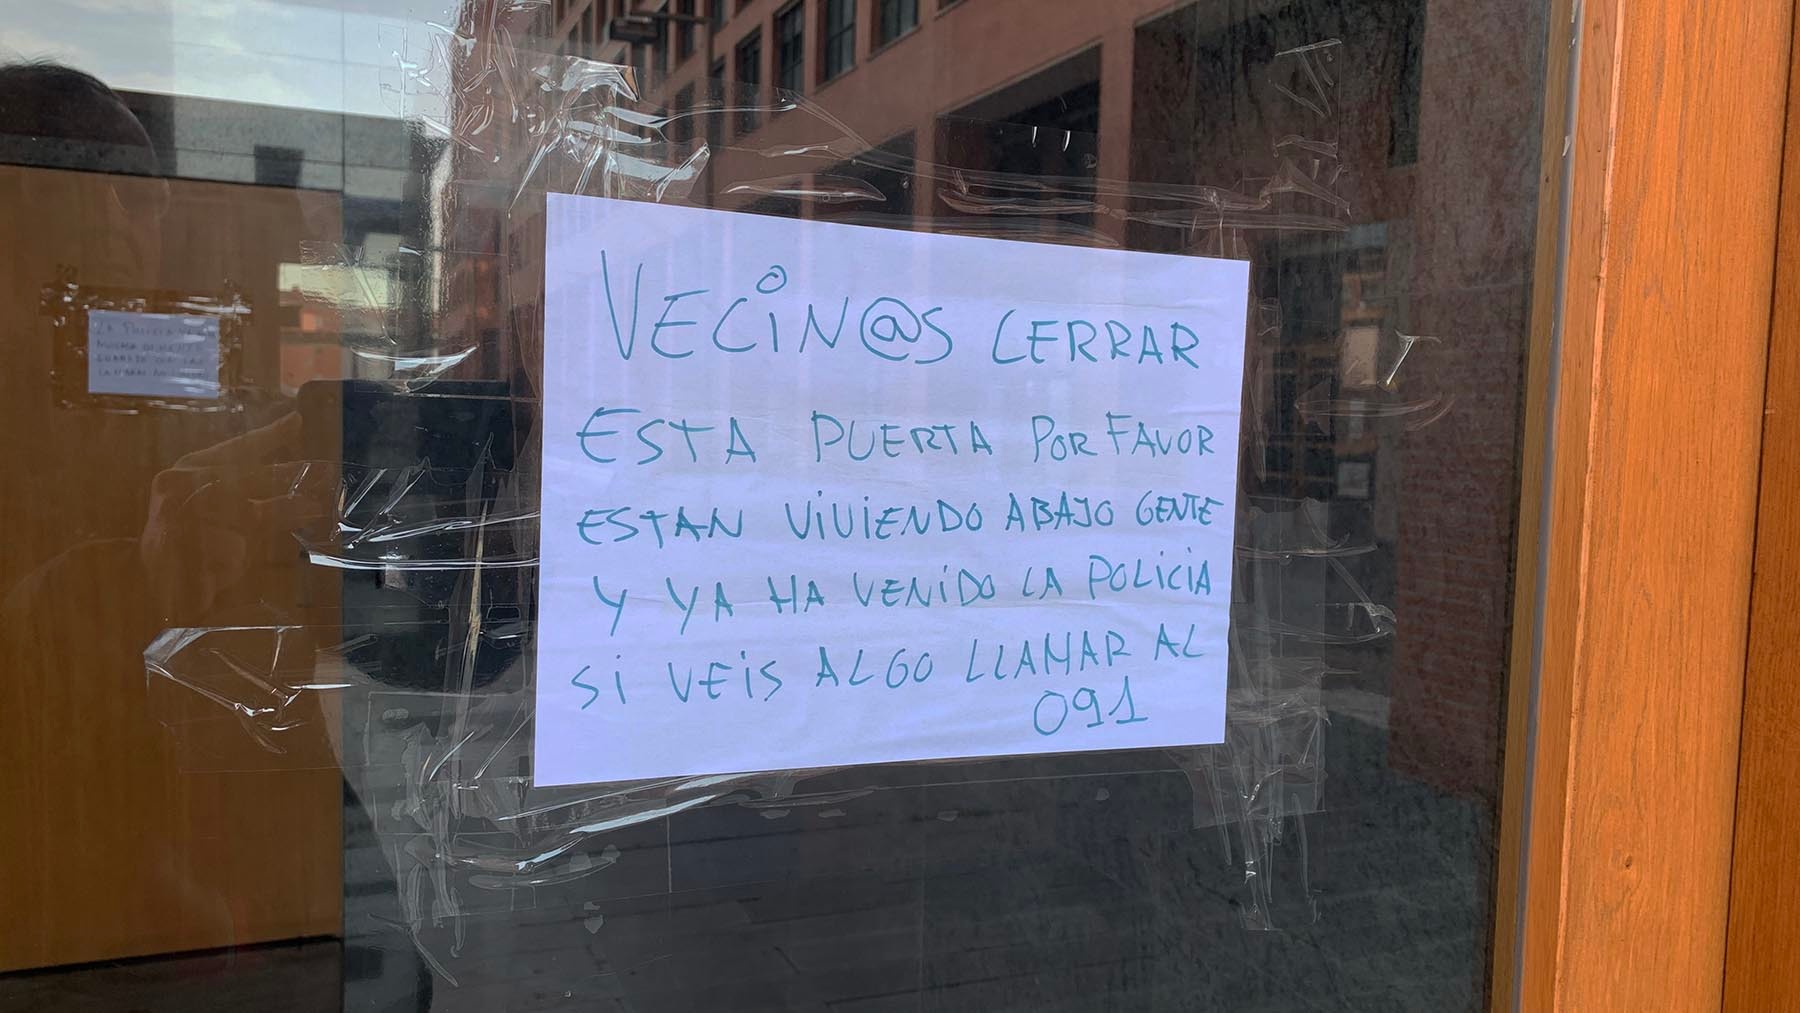 VECiN@S CERRAR
ESTA PUERTA POR FAVOR
ESTAN ViViENDO ABAJO GENTE
Y YA HA VENiDO LA POLiCiA
Si VEiS ALGO LLAMAR AL
091
LA POLICIA